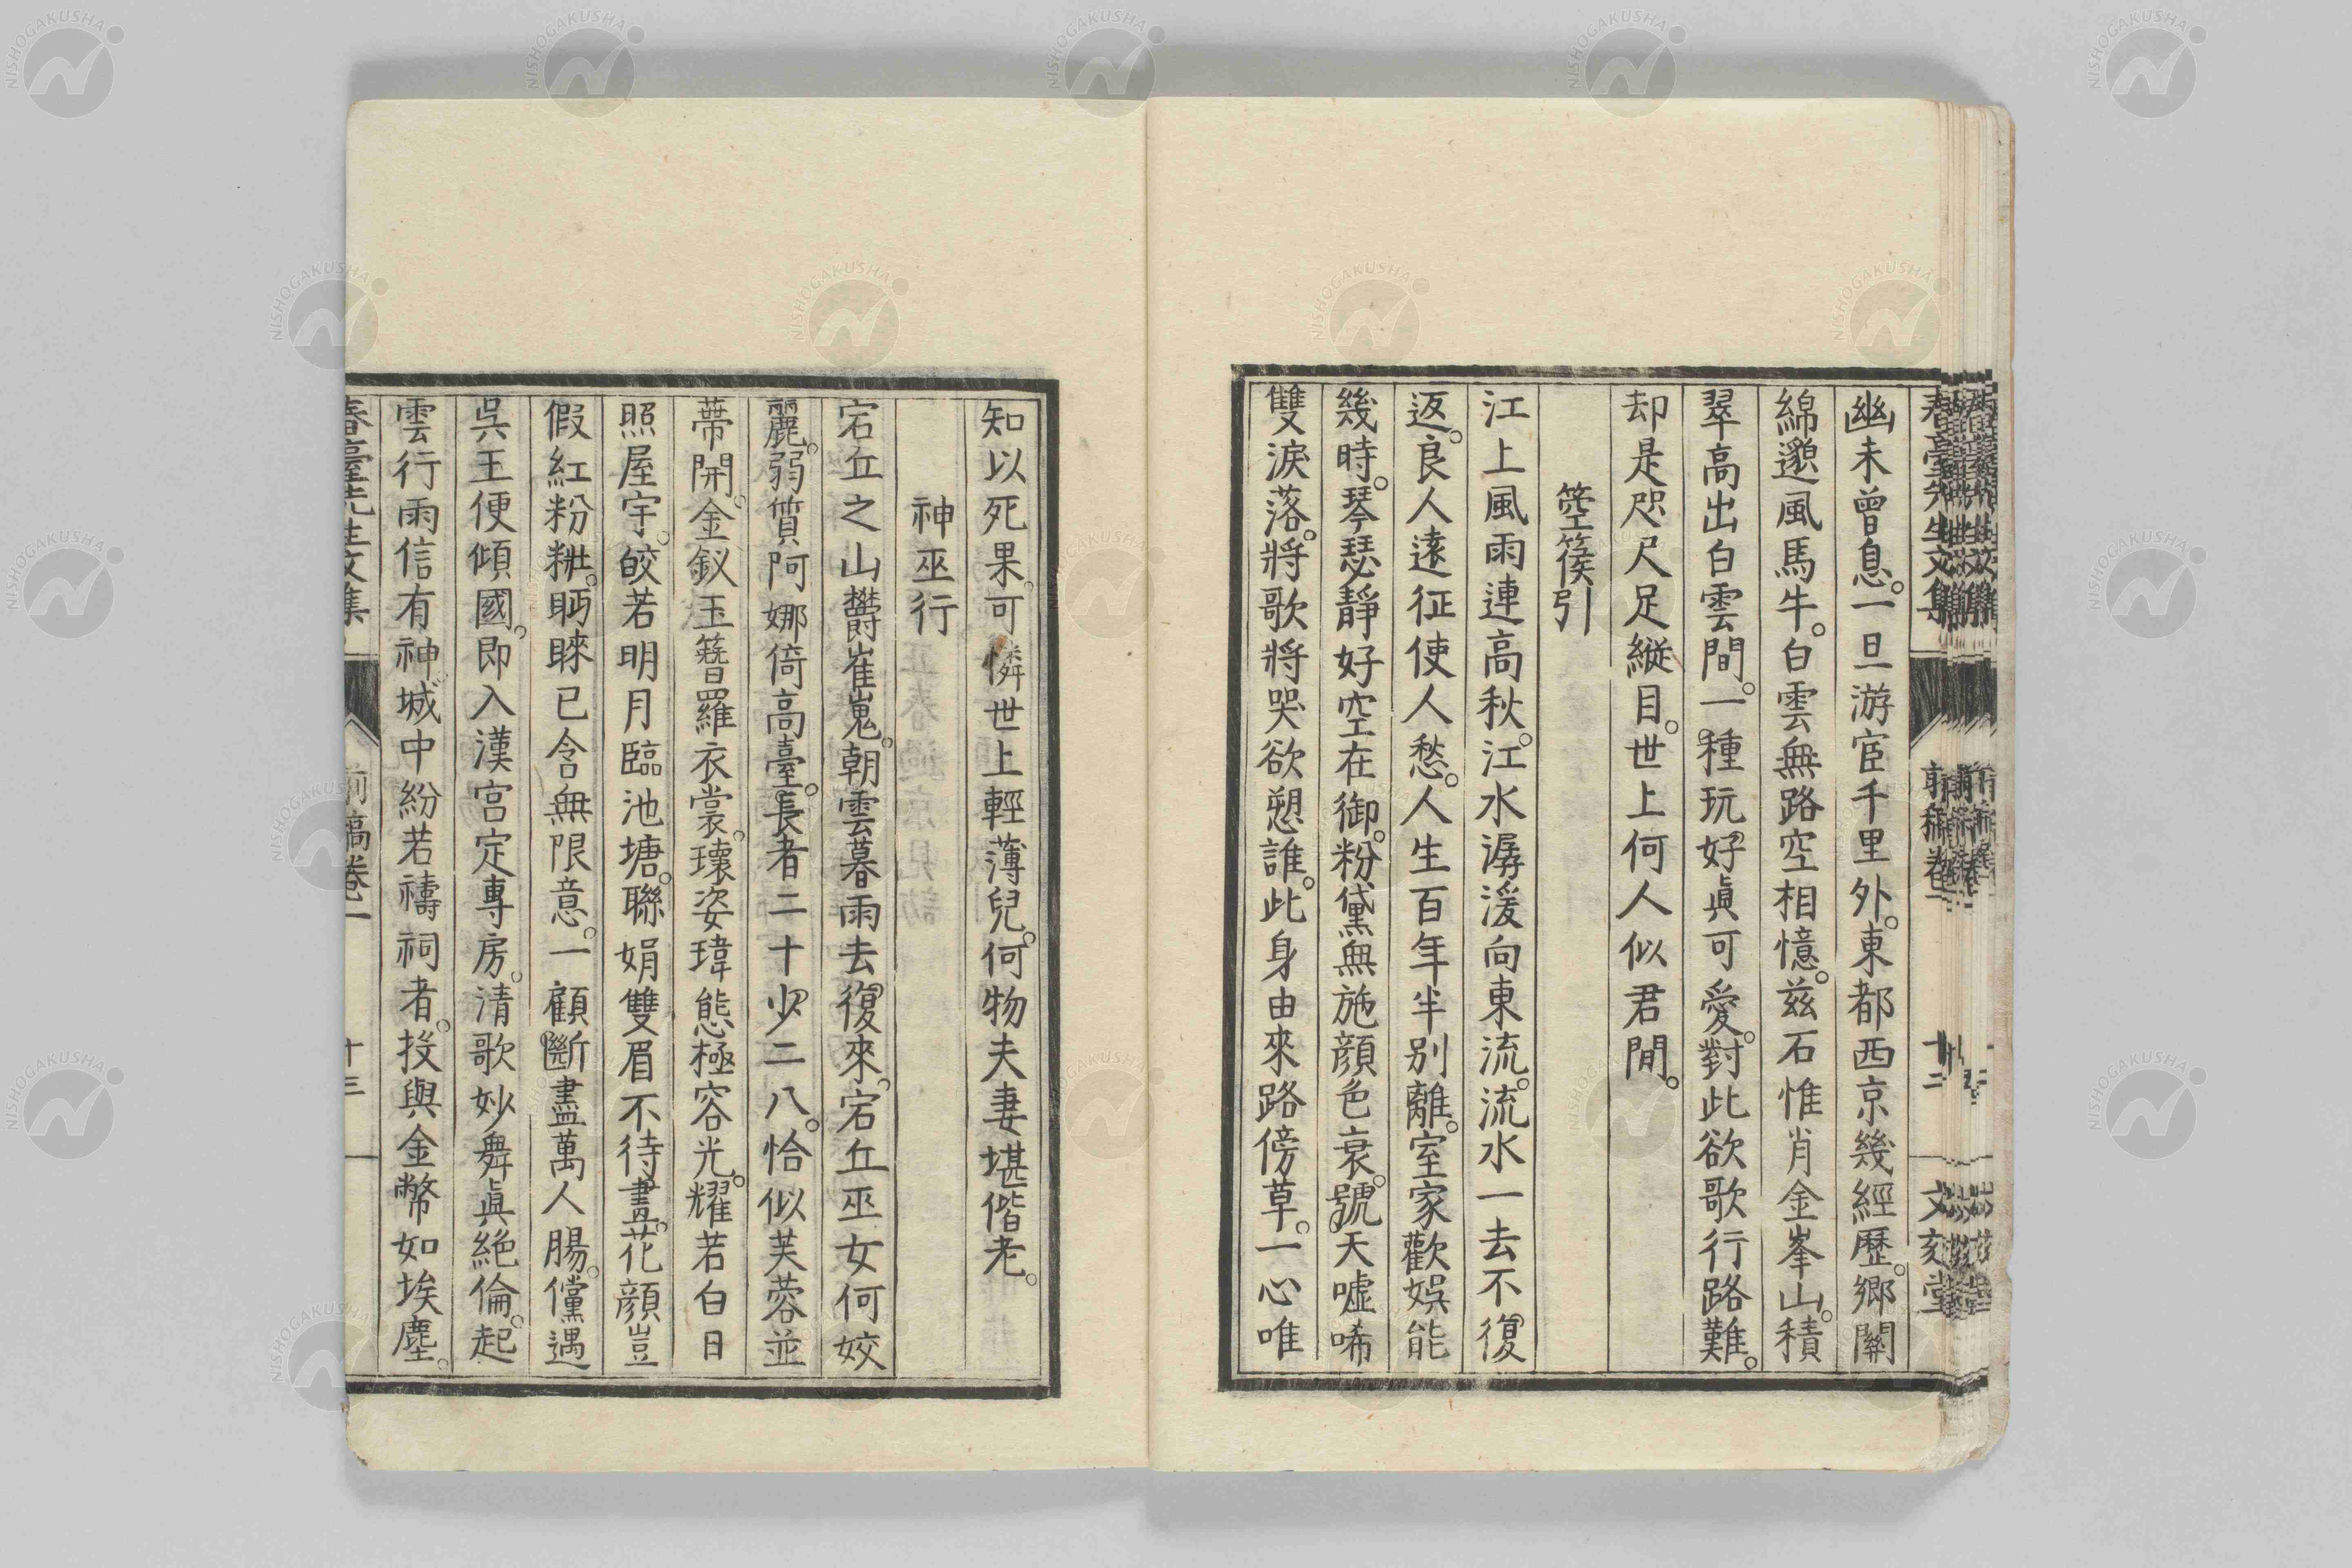 春臺先生文集 前稿卷一 十二 文刻堂
幽未曾息。一旦游宦千里外。東都西京幾經歷。鄉關
綿邈風馬牛。白雲無路空相憶。茲石惟肖金峯山。積
翠高出白雲間。一種玩好眞可愛。對此欲歌行路難。
却是咫尺足縱目。世上何人似君閒。
箜篌引
江上風雨連高秋。江水潺湲向東流。流水一去不復
返。良人遠征使人愁。人生百年半別離。室家歡娛能
幾時。琴瑟靜好空在御。粉黛無施顏色衰。號天噓唏
雙淚落。將歌將哭欲愬誰。此身由來路傍草。一心唯
知以死果。可憐世上輕薄兒。何物夫妻堪偕老。
神巫行
宕丘之山欝崔嵬。朝雲暮雨去復來。宕丘巫女何姣
麗。弱質阿娜倚高臺。長者二十少二八。恰似芙蓉並
蔕開。金釵玉簪羅衣裳。瓌姿瑋態極容光。耀若白日
照屋宇。皎若明月臨池塘。聯娟雙眉不待畫。花顏豈
假紅粉粧。眄睞已含無限意。一顧斷盡萬人腸。儻遇
吳王便傾國。即入漢宮定專房。清歌妙舞眞絕倫。起
雲行雨信有神。城中紛若禱祠者。投與金幣如埃塵。
春臺先生文集 前稿卷一 十三
NISHOGAKUSHA